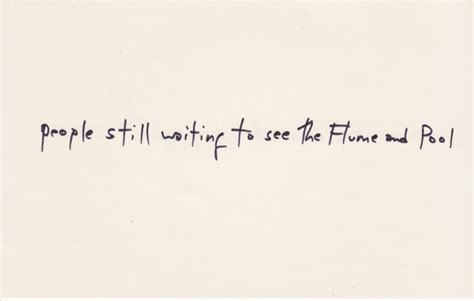 people still waiting to see the Flume and Pool